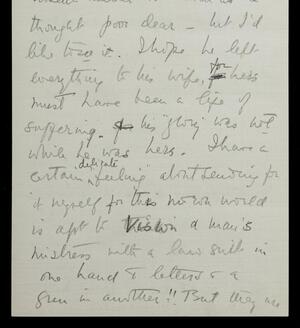 thought poor dear – but I'd
like to see it. I hope he left
everything to his wife, for hers
must have been a life of
suffering. his "glory" was not
while he was hers. I have a
certain delicate feeling about sending for
it myself for this no own world
is apt to a man's
mistress with a law suit in
one hand & letters & a
gun in another!! But they are